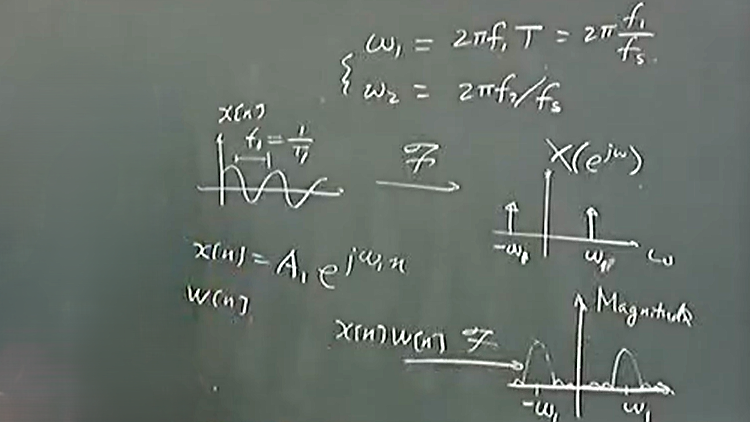 ω₁ = 2πf₁T = 2π f₁/fs
ω₂ = 2πf₂/fs
x[n]
f₁ = 1/T₁
ℱ
X(e^{jω})
-ω₁ ω₁ ω
x[n] = A₁ e^{jω₁n}
w[n]
Magnitude
x[n]w[n] ℱ
-ω₁ ω₁